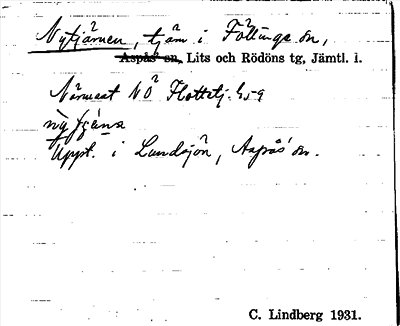 Nytjärnen, tjärn i Föllinge sn,
Aspås sn, Lits och Rödöns tg, Jämtl. l.
Närmast NÖ Flottstj.
Uppt. i Landsjön, Aspås sn.
C. Lindberg 1931.